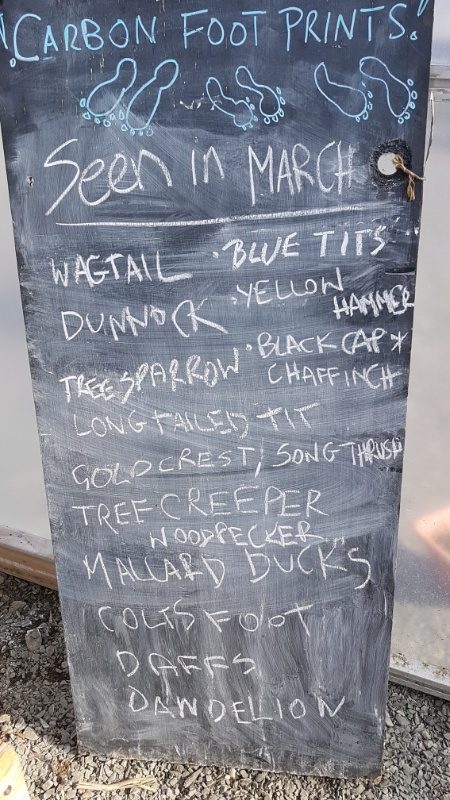 "CARBON FOOT PRINTS."
Seen in MARCH
WAGTAIL · BLUE TITS
DUNNOCK · YELLOW HAMMER
TREE SPARROW · BLACK CAP *
CHAFFINCH
LONG TAILED TIT
GOLDCREST / SONG THRUSH
TREE CREEPER
WOODPECKER
MALLARD DUCKS
COLTS FOOT
DAFFS
DAWDELION